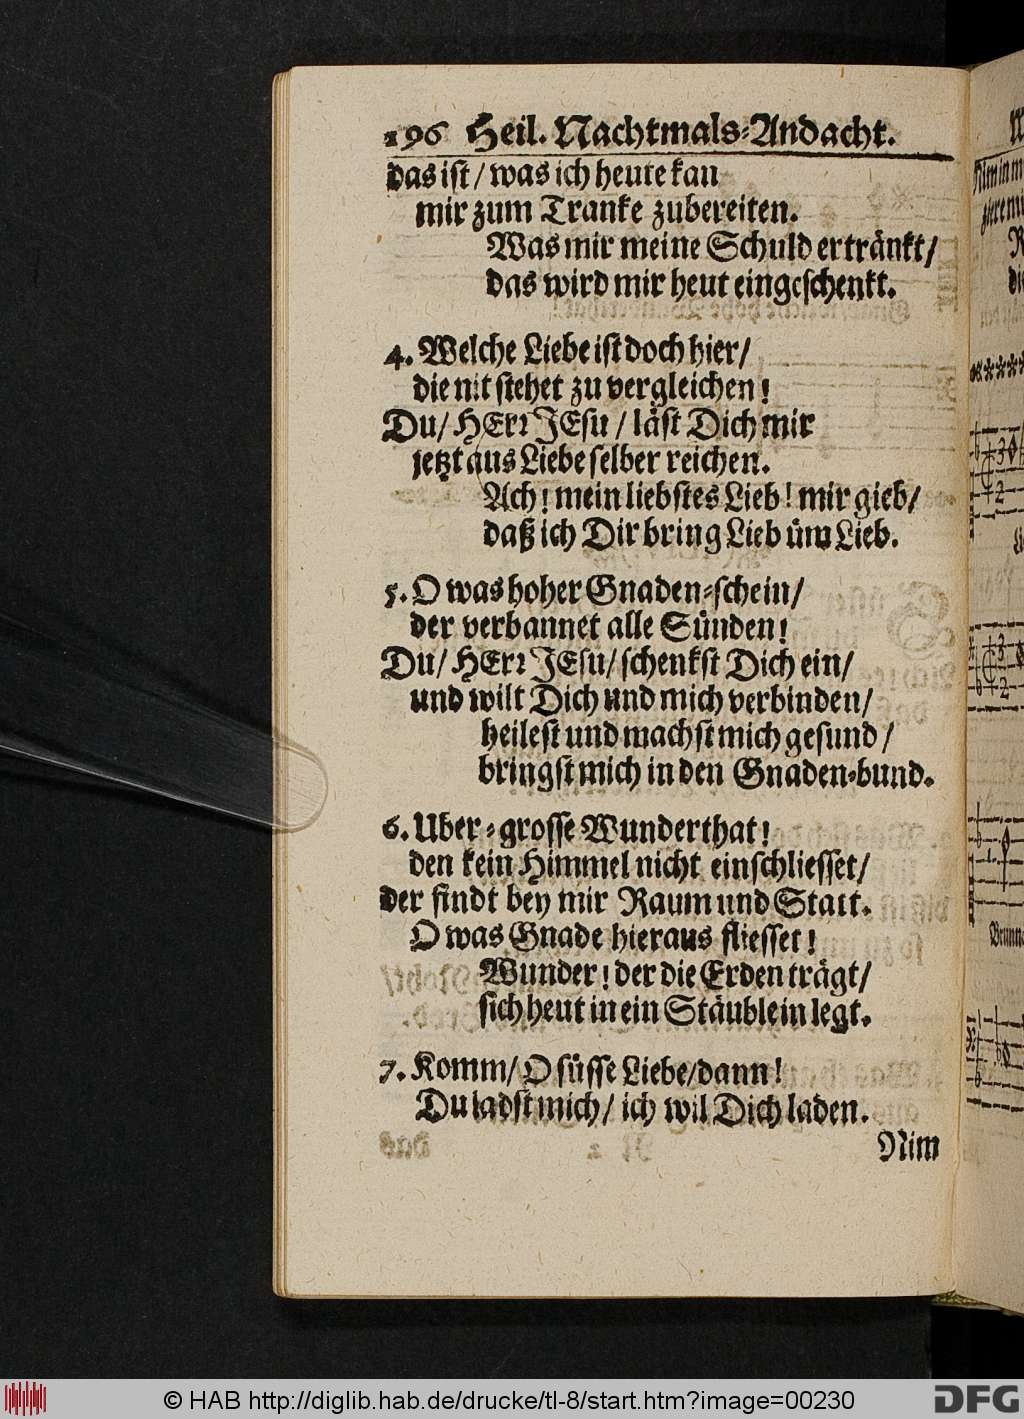 196 Heil. Nachtmals-Andacht.
das ist / was ich heute kan
mir zum Tranke zubereiten.
Was mir meine Schuld ertränkt /
das wird mir heut eingeschenkt.
4. Welche Liebe ist doch hier /
die nit stehet zu vergleichen!
Du / HErr JEsu / läst Dich mir
jetzt aus Liebe selber reichen.
Ach! mein liebstes Lieb! mir gieb /
daß ich Dir bring Lieb üm Lieb.
5. O was hoher Gnaden-schein /
der verbannet alle Sünden!
Du / HErr JEsu / schenkst Dich ein /
und wilt Dich und mich verbinden /
heilest und machst mich gesund /
bringst mich in den Gnaden-bund.
6. Uber-grosse Wunderthat!
den kein Himmel nicht einschliesset /
der findt bey mir Raum und Statt.
O was Gnade hieraus fliesset!
Wunder! der die Erden trägt /
sich heut in ein Stäublein legt.
7. Komm / O süsse Liebe / dann!
Du ladst mich / ich wil Dich laden.
Nim
© HAB http://diglib.hab.de/drucke/tl-8/start.htm?image=00230
DFG